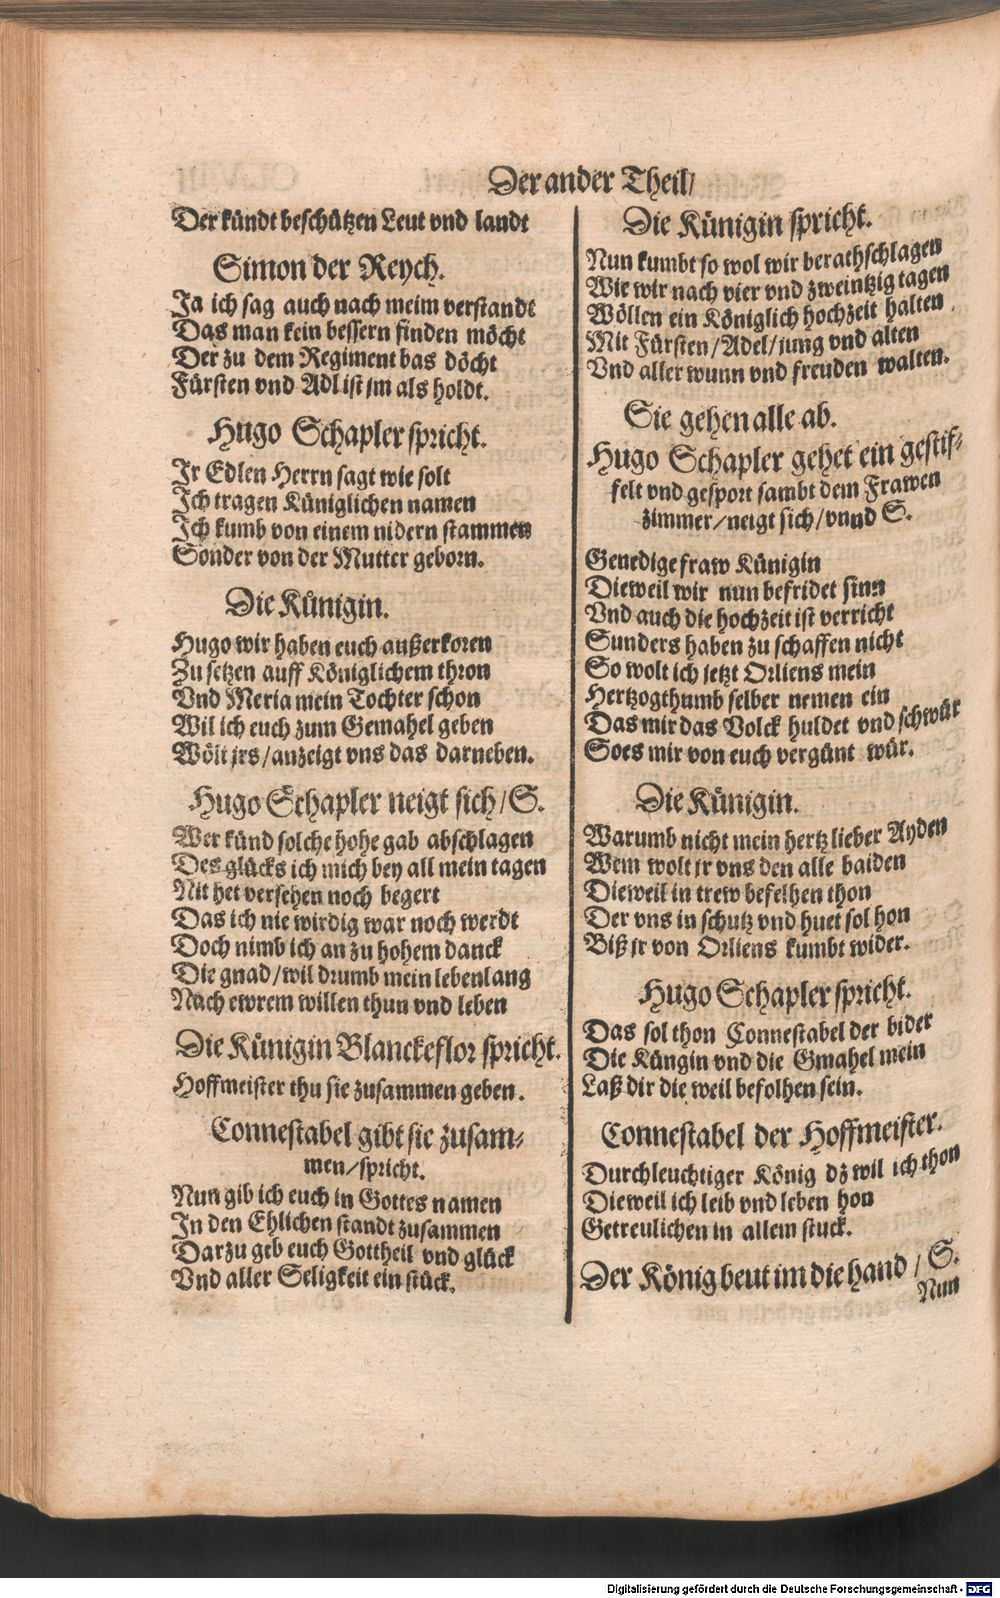 Der ander Theil/
Der kündt beschützen Leut vnd landt
Simon der Reych.
Ja ich sag auch nach meim verstandt
Das man kein bessern finden möcht
Der zu dem Regiment bas döcht
Fürsten vnd Adl ist jm als holdt.
Hugo Schapler spricht.
Jr Edlen Herrn sagt wie solt
Ich tragen Küniglichen namen
Ich kumb von einem nidern stammen
Sonder von der Mutter geborn.
Die Künigin.
Hugo wir haben euch außerkoren
Zu setzen auff Königlichem thron
Vnd Meria mein Tochter schon
Wil ich euch zum Gemahel geben
Wölt jrs/anzeigt vns das darneben.
Hugo Schapler neigt sich/S.
Wer künd solche hohe gab abschlagen
Des glücks ich mich bey all mein tagen
Nit het versehen noch begert
Das ich nie wirdig war noch werdt
Doch nimb ich an zu hohem danck
Die gnad/wil drumb mein lebenlang
Nach ewrem willen thun vnd leben
Die Künigin Blanckeflor spricht.
Hoffmeister thu sie zusammen geben.
Connestabel gibt sie zusam⸗
men/spricht.
Nun gib ich euch in Gottes namen
In den Ehlichen standt zusammen
Darzu geb euch Gott heil vnd glück
Vnd aller Seligkeit ein stück.
Die Künigin spricht.
Nun kumbt so wol wir berathschlagen
Wie wir nach vier vnd zweintzig tagen
Wöllen ein Königlich hochzeit halten
Mit Fürsten/Adel/jung vnd alten
Vnd aller wunn vnd freuden walten.
Sie gehen alle ab.
Hugo Schapler gehet ein gestif⸗
felt vnd gesport sambt dem Frawen
zimmer/neigt sich/vnnd S.
Genedige fraw Künigin
Dieweil wir nun befridet sinn
Vnd auch die hochzeit ist verricht
Sunders haben zu schaffen nicht
So wolt ich jetzt Orliens mein
Hertzogthumb selber nemen ein
Das mir das Volck huldet vnd schwür
So es mir von euch vergünt wür.
Die Künigin.
Warumb nicht mein hertz lieber Ayden
Wem wolt jr vns den alle baiden
Dieweil in trew befelhen thon
Der vns in schutz vnd huet sol hon
Biß jr von Orliens kumbt wider.
Hugo Schapler spricht.
Das sol thon Connestabel der bider
Die Küngin vnd die Gmahel mein
Laß dir die weil befolhen sein.
Connestabel der Hoffmeister.
Durchleuchtiger König dz wil ich thon
Dieweil ich leib vnd leben hon
Getreulichen in allem stuck.
Der König beut im die hand/S.
Nun
Digitalisierung gefördert durch die Deutsche Forschungsgemeinschaft - DFG